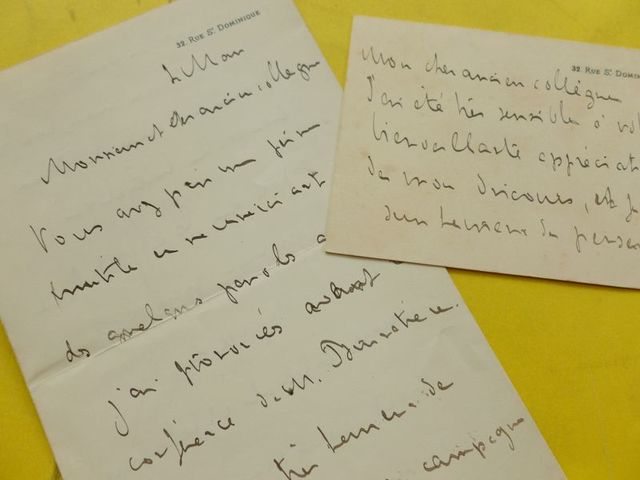 32, RUE ST. DOMINIQUE
2 Mars
Monsieur et cher ancien collègue
Vous avez pris une peine
inutile en me remerciant
des quelques paroles
j'ai prononcées avant
conférence de M. Brunetière.
très heureux de
campagne
32 RUE ST. DOMIN
Mon cher ancien collègue
J'ai été très sensible à vot
bienveillante appréciat
de mon discours, et je
suis heureux de penser